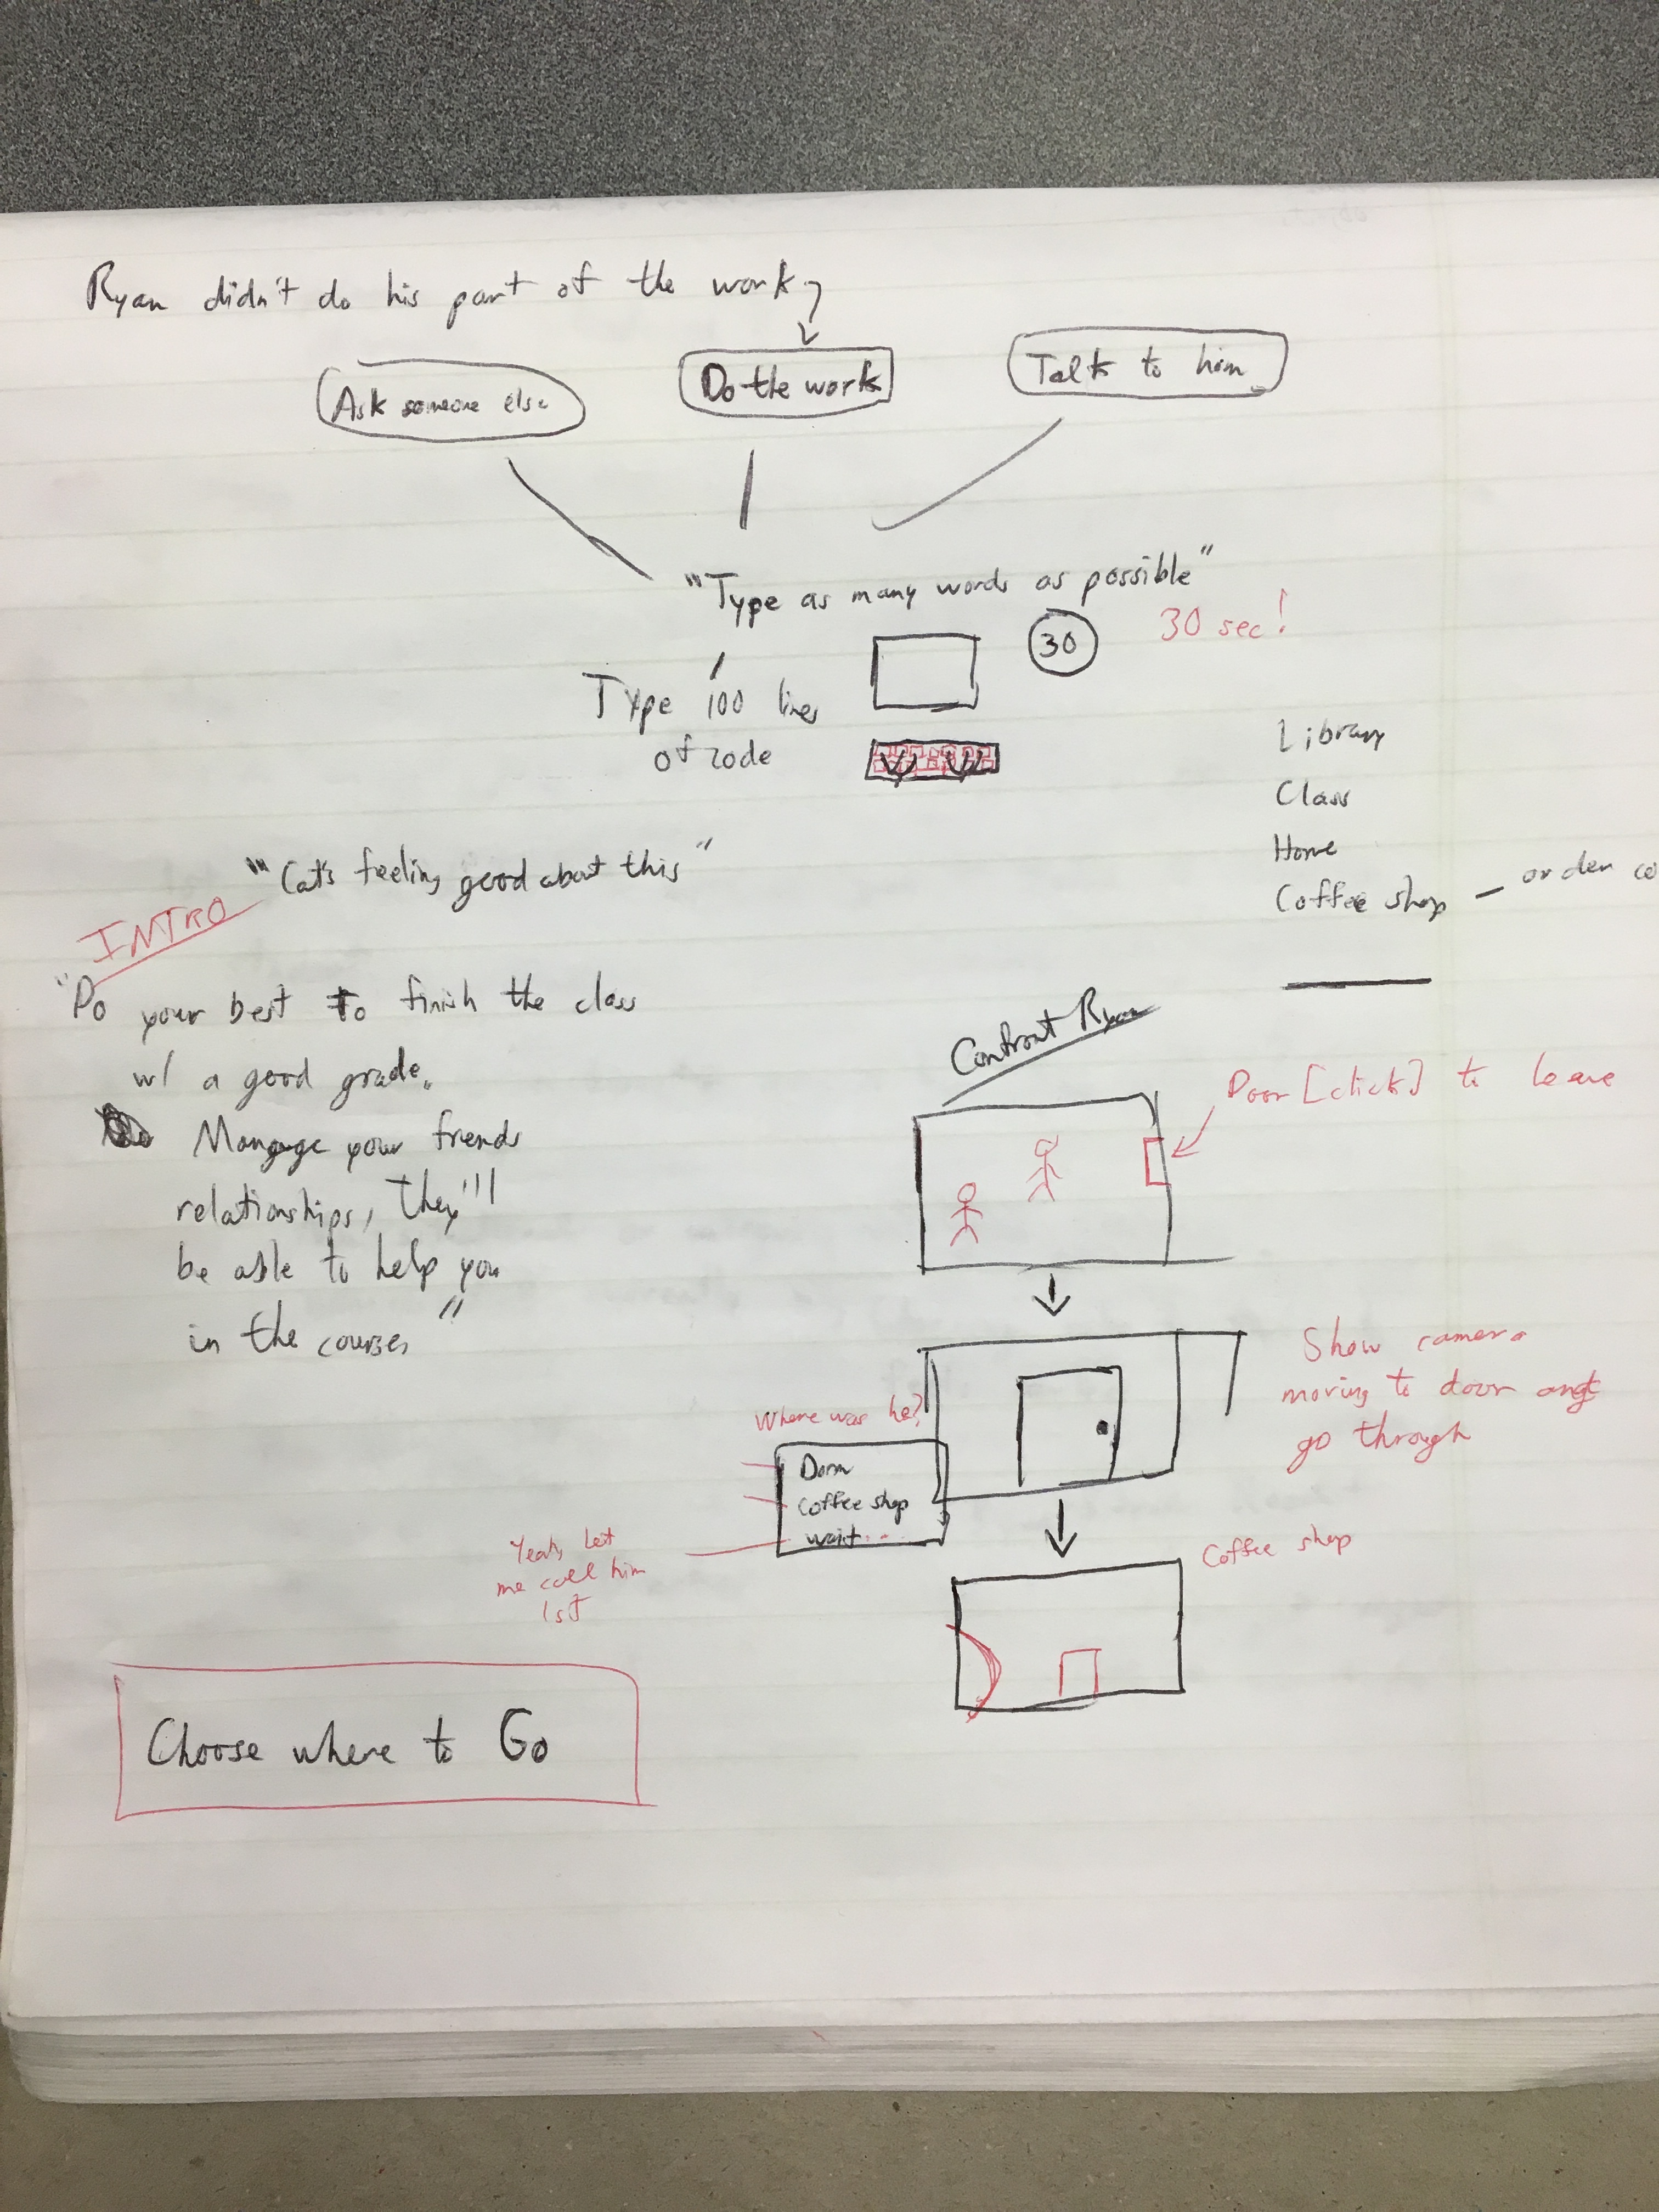 Ryan didn't do his part of the work
Ask someone else
Do the work
Talk to him
"Type as many words as possible"
30
30 sec!
Type 100 lines
of code
Library
Class
Home
Coffee shop – order
"Cat's feeling good about this"
INTRO
"Do your best to finish the class
w/ a good grade.
Mangage your friends
relationships, they'll
be able to help you
in the courses"
Confront Ryan
Door [click] to leave
Show camera
moving to door and
go through
Where was he?
Dorm
Coffee shop
wait...
Yeah, let
me call him
1st
Coffee shop
Choose where to Go